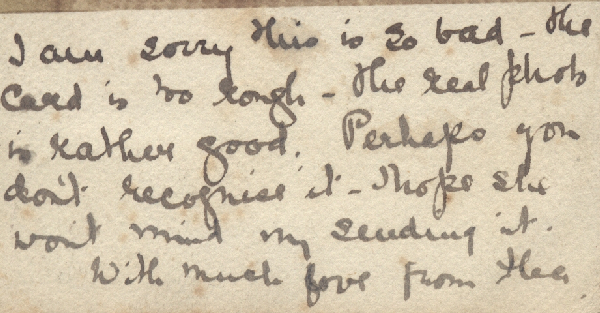 I am sorry this is so bad - the
Card is too rough - the real photo
is rather good. Perhaps you
don't recognise it - I hope she
won't mind my sending it.
With much love from Thea